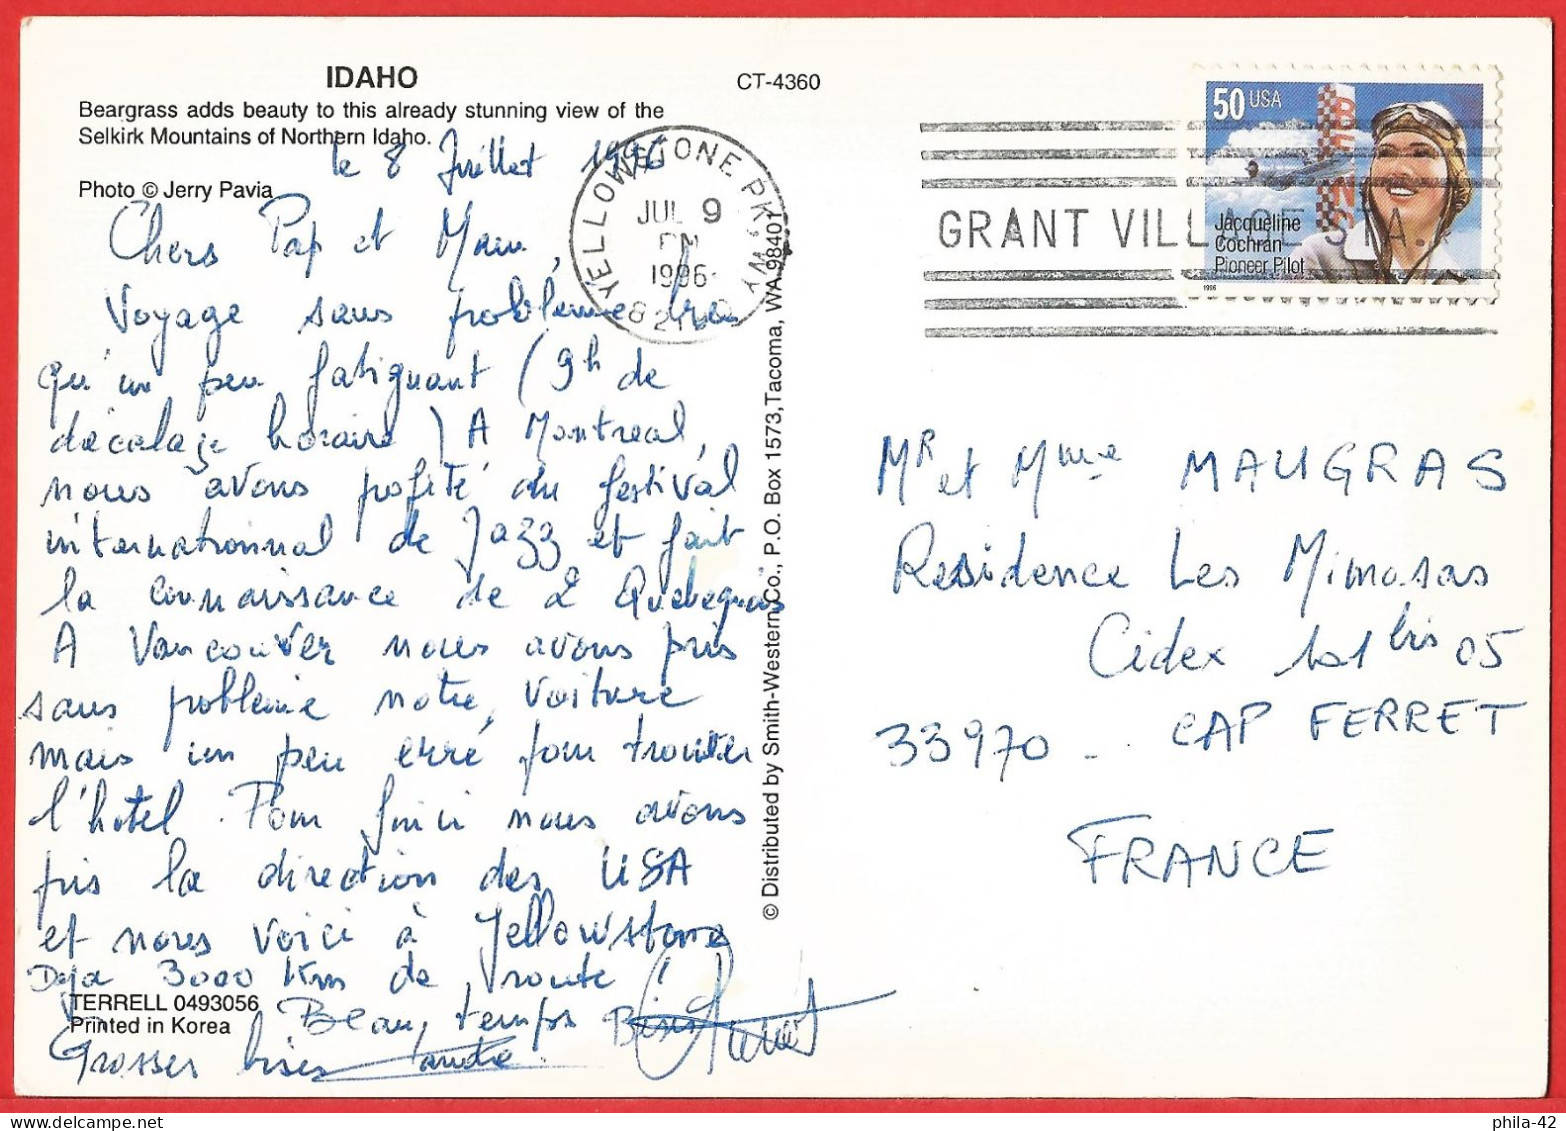 IDAHO
Beargrass adds beauty to this already stunning view of the
Selkirk Mountains of Northern Idaho.
Photo © Jerry Pavia
CT-4360
le 8 Juillet 1996
Chers Pap et Mam,
Voyage sans problème
qu'un peu fatiguant (9h de
décalage horaire) A Montreal,
nous avons profité du festival
internationnal de Jazz et fait
la connaissance de 2 Quebequois
A Vancouver nous avons pris
sans problème notre voiture
mais un peu erré pour trouver
l'hotel. Pour finir nous avons
pris la direction des USA
et nous voici à Yellowstone
Deja 3000 Km de route !
Beau temps Bises
Grosses bises
TERRELL 0493056
Printed in Korea
© Distributed by Smith-Western Co., P.O. Box 1573, Tacoma, WA 98401
YELLOWSTONE PK, WY 82190
JUL 9
PM
1996
GRANT VILLAGE STA.
50 USA
Jacqueline
Cochran
Pioneer Pilot
1996
Mr et Mme MAUGRAS
Residence Les Mimosas
Cidex 101 bis 05
33970 - CAP FERRET
FRANCE
phila-42